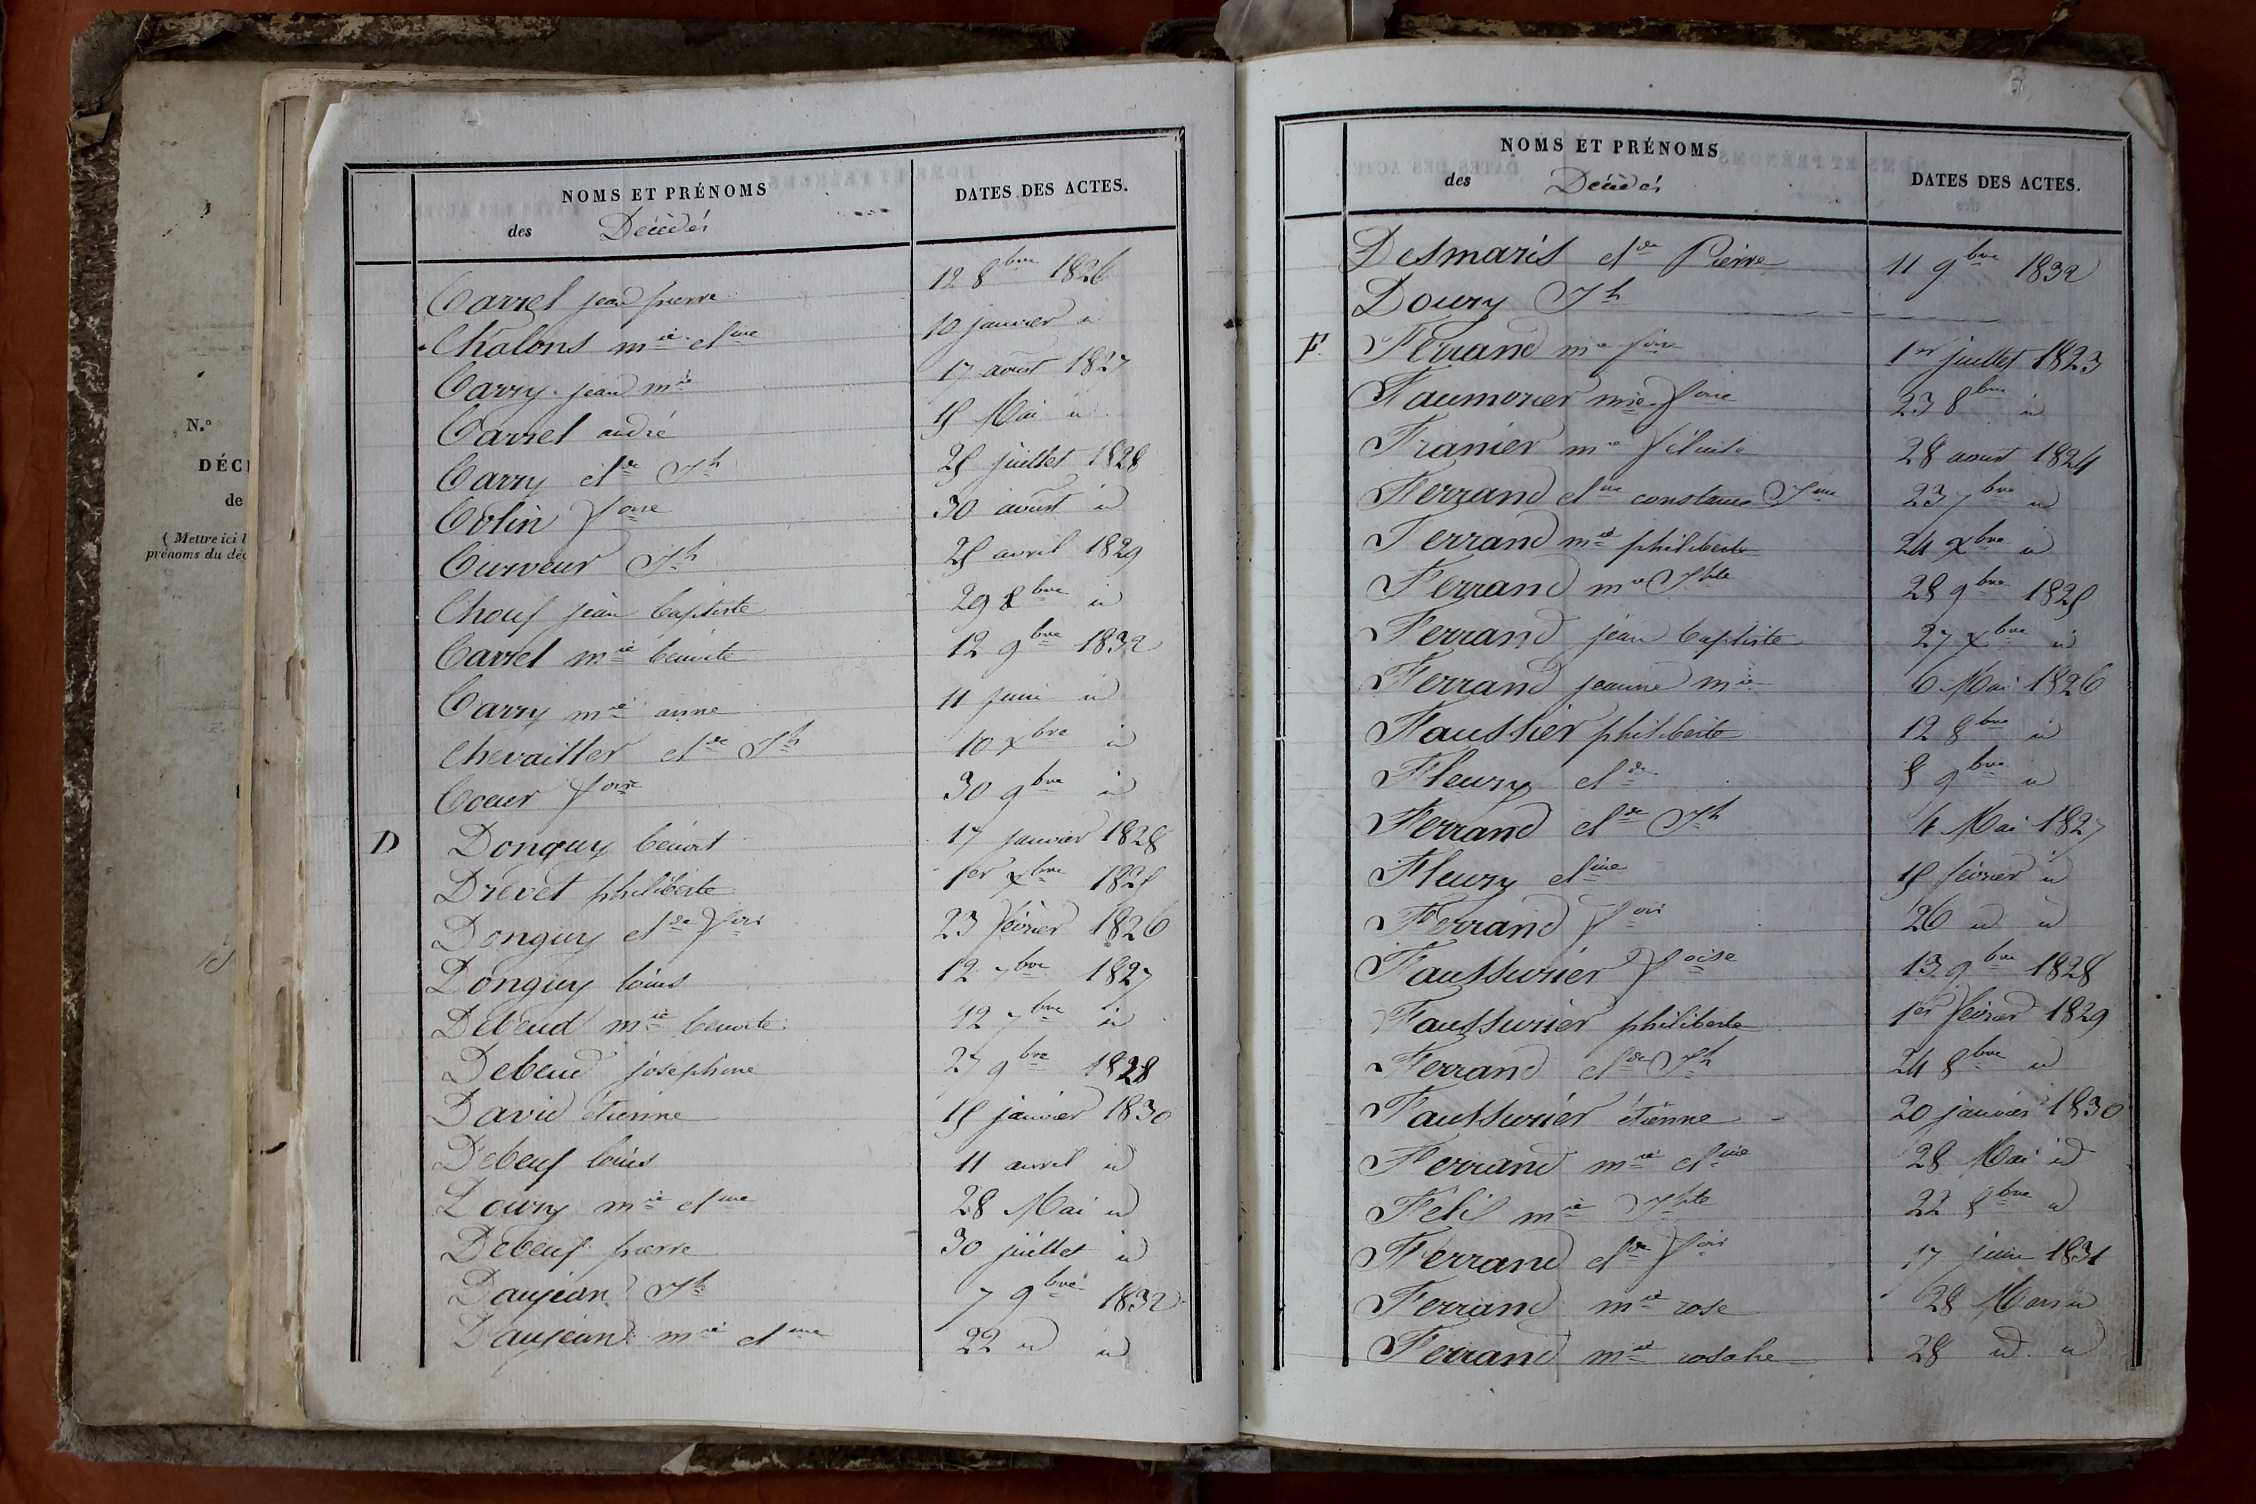 N.º
DÉC
de
( Mettre ici l
prénoms du déc
NOMS ET PRÉNOMS
des Décédés
DATES DES ACTES.
Carrel jean pierre 12 8bre 1826
Chalons mie clme 10 janvier id
Carry jean mie 17 aoust 1827
Carrel andré 15 Mai id
Carry clde Jh 25 juillet 1828
Colin foise 30 aoust id
Curveur Jh 25 avril 1829
Chouf jean baptiste 29 8bre id
Carrel mie benoite 12 9bre 1832
Carry mie anne 11 juin id
Chevailler clde Jh 10 xbre id
Coeur foise 30 9bre id
D Donguy benoit 17 janvier 1825
Drevet philiberte 1er xbre 1825
Donguy clde fois 23 février 1826
Donguy louis 12 7bre 1827
Debeud mie benoite 12 7bre id
Debeud joséphine 27 9bre 1828
David étienne 15 janvier 1830
Debeuf louis 11 avril id
Doury mie clme 28 Mai id
Debeuf pierre 30 juillet id
Daujean Jh 7 9bre 1832
Daujean mie clme 22 id id
NOMS ET PRÉNOMS
des Décédés
DATES DES ACTES.
Desmaris clde Pierre 11 9bre 1832
Doury Jh
F Ferrand mie fois 1er juillet 1823
Faumorier mie foise 23 8bre id
Franier mie félicité 28 aoust 1824
Ferrand clme constance Jme 23 7bre id
Ferrand mie philiberte 24 xbre id
Ferrand mie Jhte 28 9bre 1825
Ferrand jean baptiste 27 xbre id
Ferrand jeanne mie 6 Mai 1826
Faussier philiberte 12 8bre id
Fleury clde 8 9bre id
Ferrand clde Jh 4 Mai 1827
Fleury clme 15 février id
Ferrand fois 26 id id
Faussurier foise 13 9bre 1828
Faussurier philiberte 1er février 1829
Ferrand clde Jh 24 8bre id
Faussurier étienne 20 janvier 1830
Ferrand mie clme 28 Mai id
Félis mie Jhte 22 8bre id
Ferrand clde fois 17 juin 1831
Ferrand mie rose 28 Mars id
Ferrand mie rosalie 28 id id